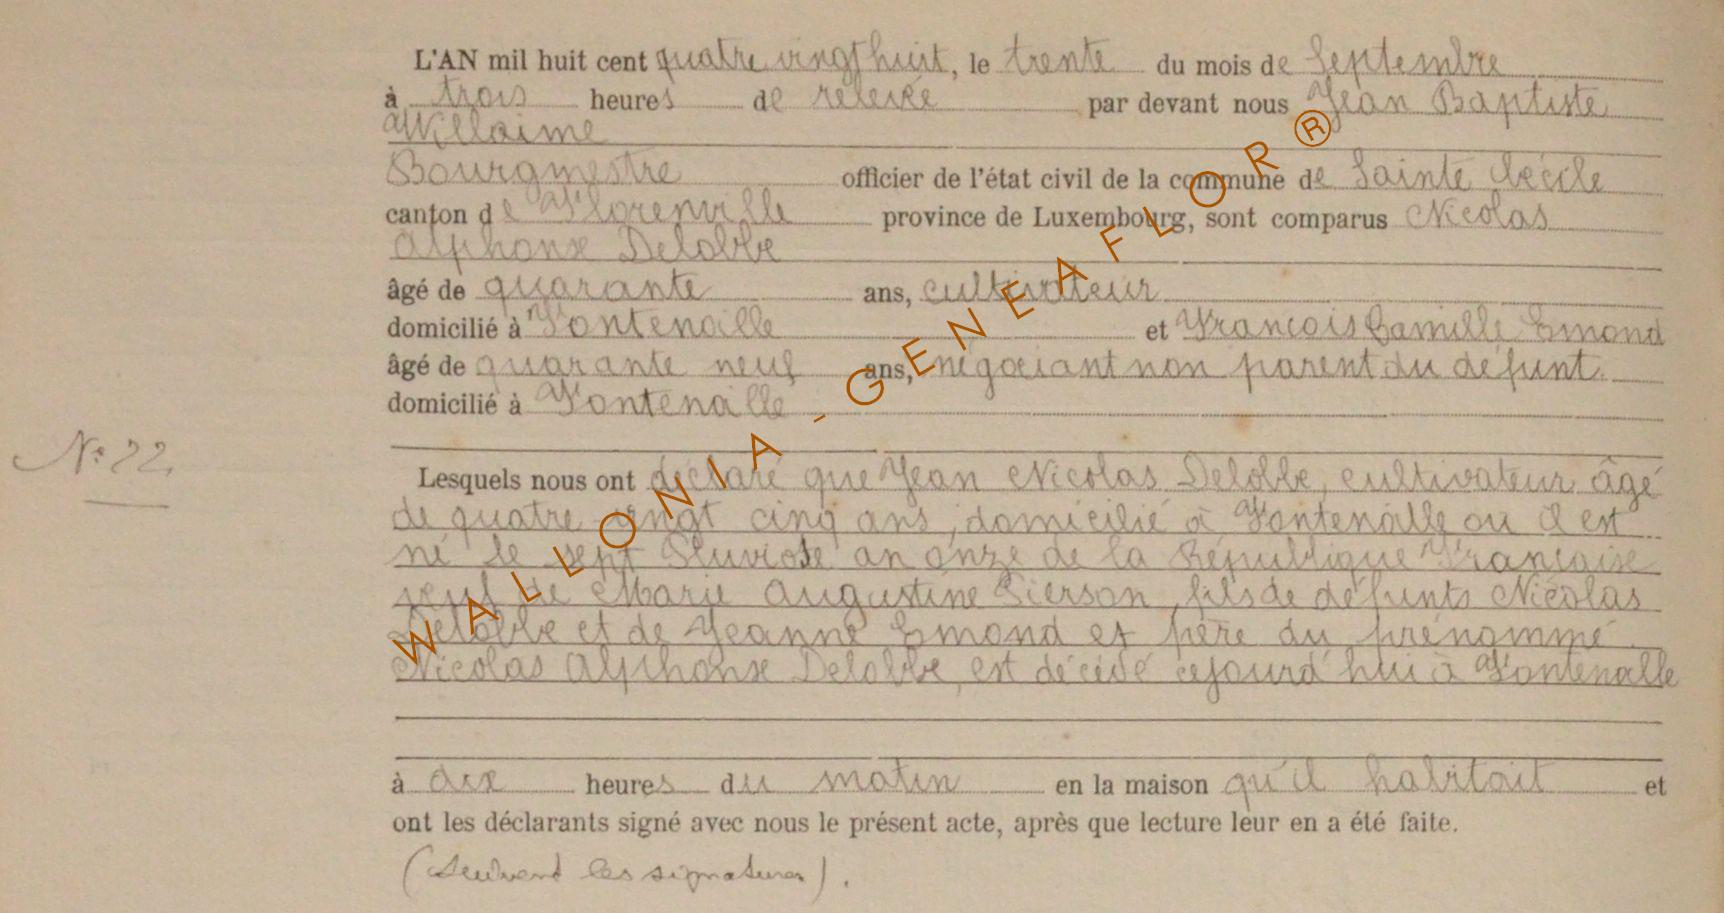 L'AN mil huit cent quatre vingt huit, le trente du mois de Septembre
à trois heures de relevée par devant nous Jean Baptiste
Willaime
Bourgmestre officier de l'état civil de la commune de Sainte Cécile
canton de Florenville province de Luxembourg, sont comparus Nicolas
Alphonse Delobbe
âgé de quarante ans, cultivateur
domicilié à Fontenaille et Francois Camille Emond
âgé de quarante neuf ans, négociant non parent du défunt.
domicilié à Fontenaille
N° 22.
Lesquels nous ont déclaré que Jean Nicolas Delobbe, cultivateur âgé
de quatre vingt cinq ans, domicilié à Fontenaille où il est
né le sept Pluviose an onze de la République Francaise
veuf de Marie Augustine Pierson, fils de défunts Nicolas
Delobbe et de Jeanne Emond et père du prénommé
Nicolas Alphonse Delobbe, est décédé cejourd'hui à Fontenalle
à dix heures du matin en la maison qu'il habitait et
ont les déclarants signé avec nous le présent acte, après que lecture leur en a été faite.
(Suivent les signatures).
WALLONIA-GENEAFLOR®